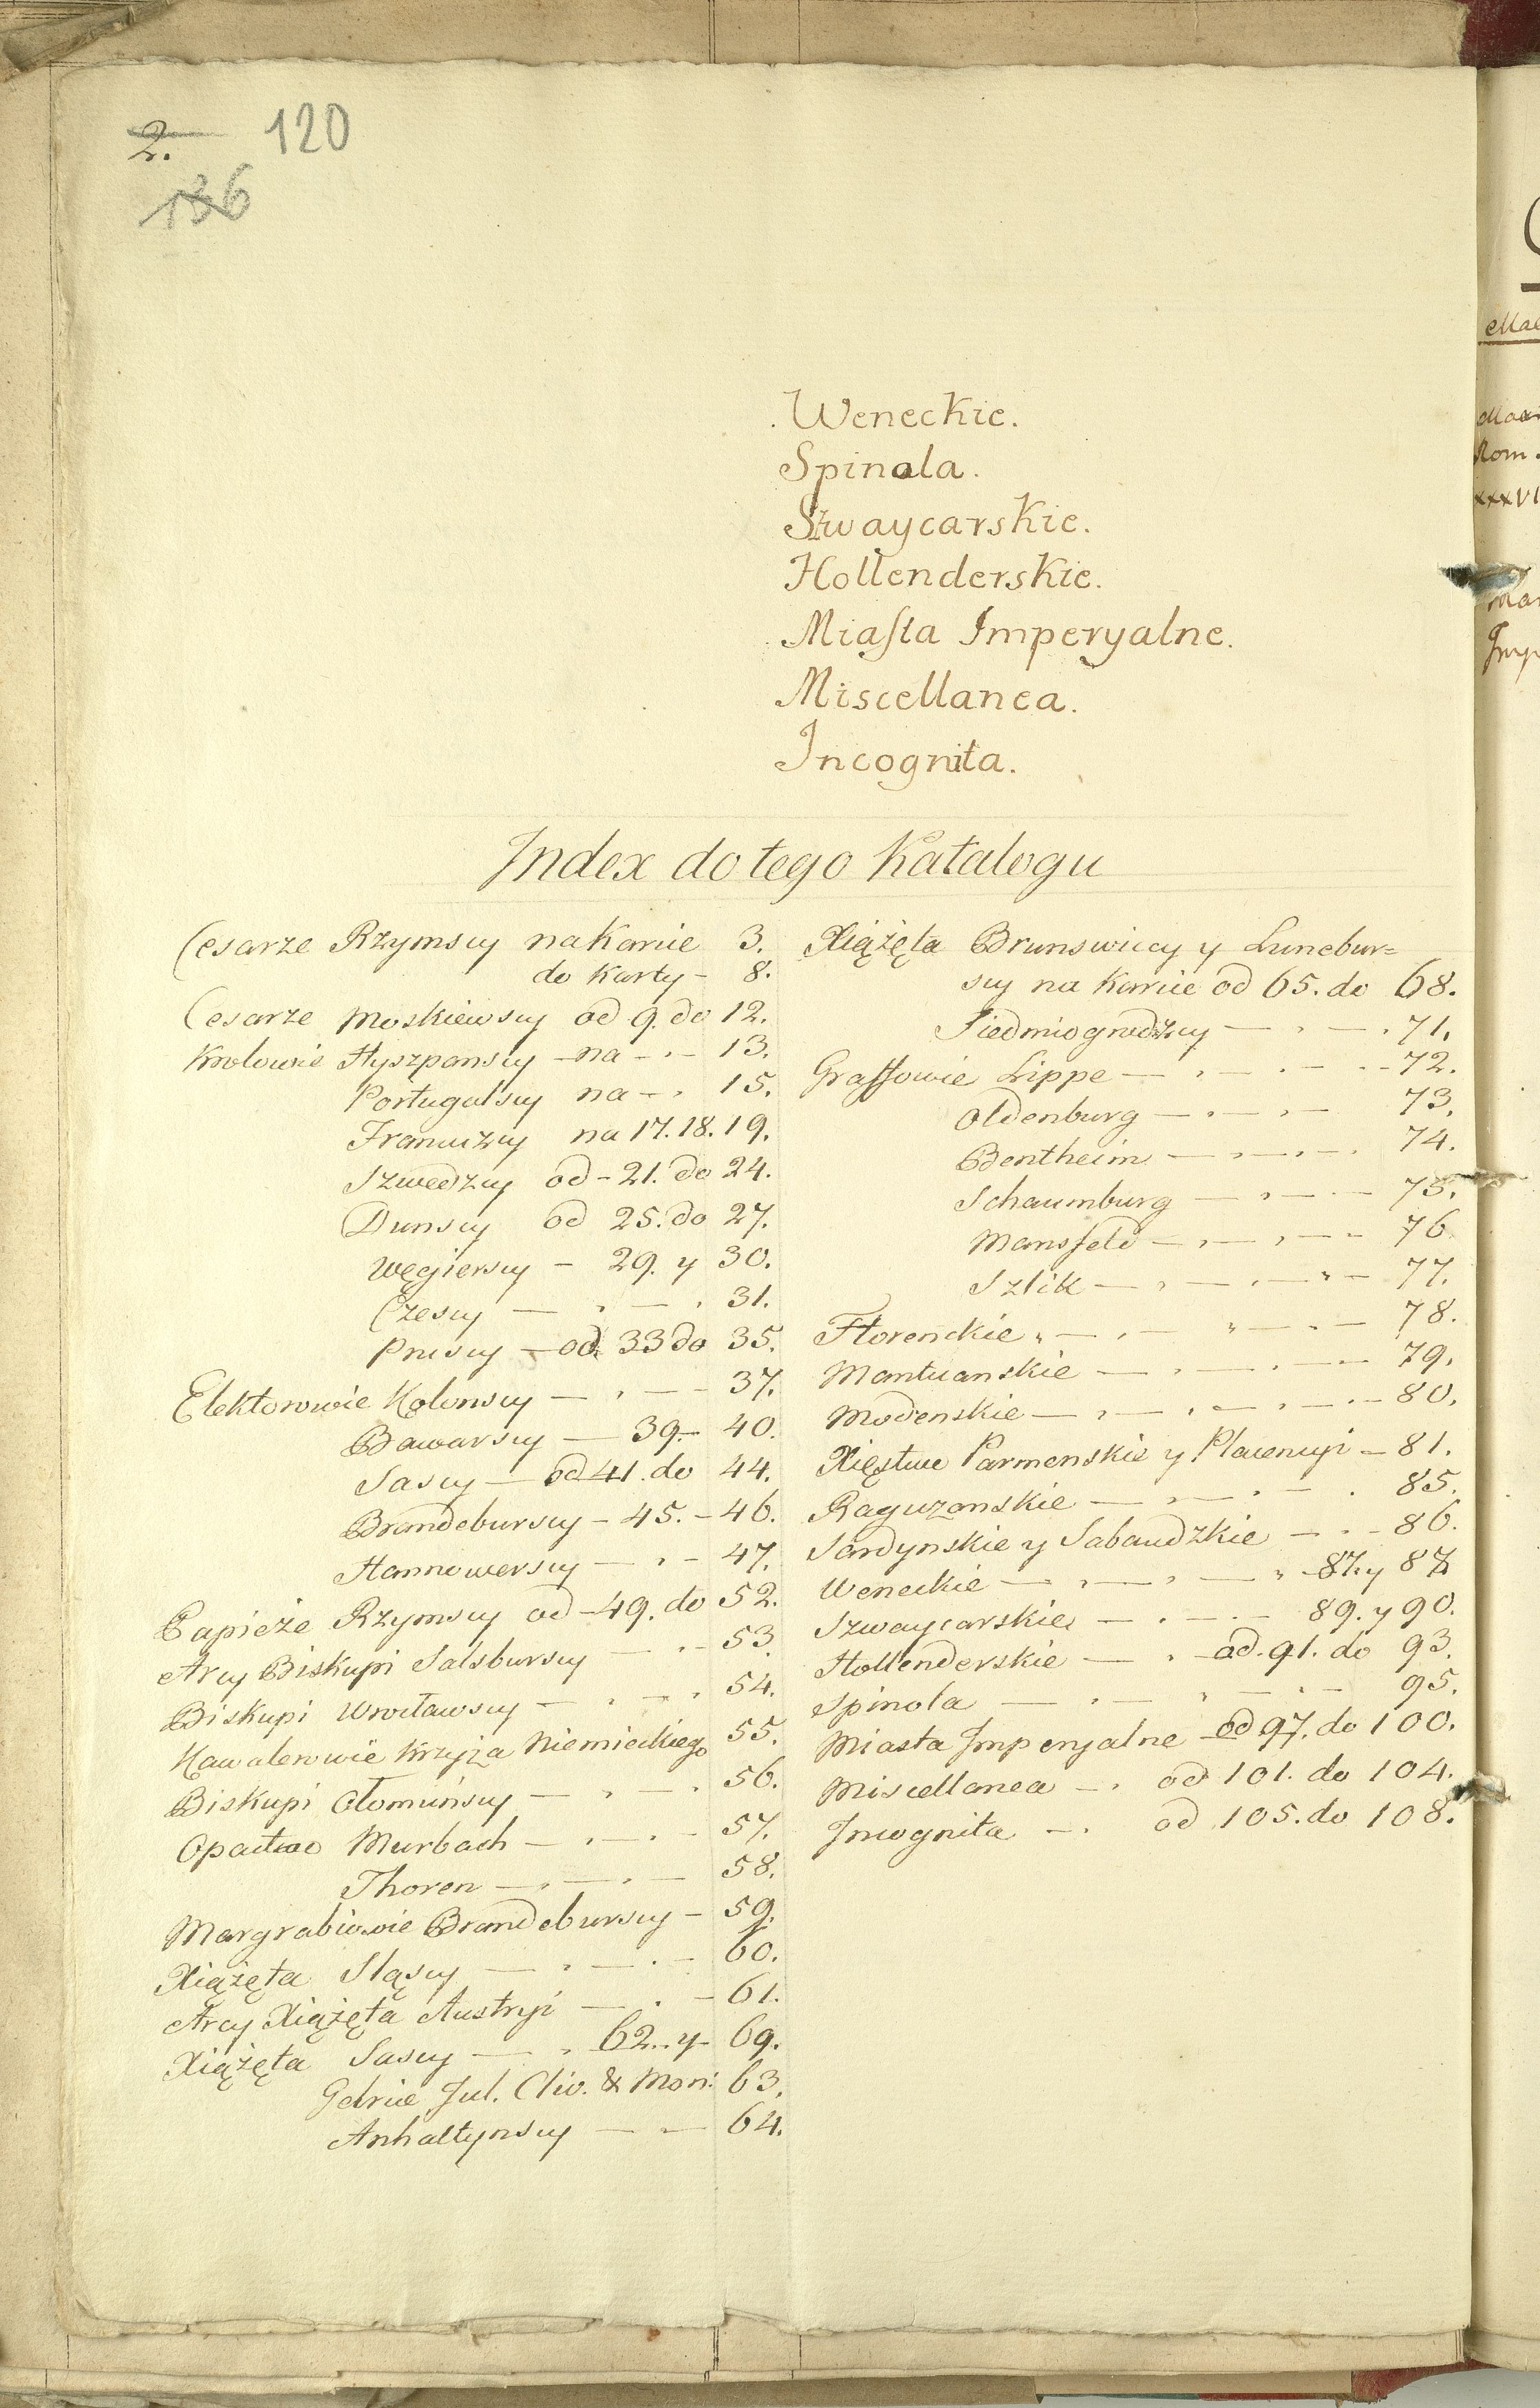 2. 120
136
Weneckie.
Spinola.
Szwaycarskie.
Hollenderskie.
Miaſta Imperyalne.
Miscellanea.
Incognita.
Index do tego Katalogu
Cesarze Rzymscy na Karcie 3.
do Karty - 8.
Cesarze Moskiewscy od 9. do 12.
Krolowie Hyszpanscy - na - . - 13.
Portugalscy na - . 15.
Francuzcy na 17. 18. 19.
Szwedzcy od - 21. do 24.
Dunscy od 25. do 27.
Węgierscy - 29. y 30.
Czescy - . - . 31.
Pruscy - od 33 do 35.
Elektorowie Kolonscy - . - - 37.
Bawarscy - 39. - 40.
Sascy - od 41. do 44.
Brandeburscy - 45. - 46.
Hannowerscy - . - 47.
Papieże Rzymscy od - 49. do 52.
Arcy Biskupi Salsburscy - . - 53.
Biskupi Wrocławscy - . - . 54.
Kawalerowie Krzyża Niemieckiego 55.
Biskupi Ołomuńscy - . - . 56.
Opactwo Murbach - . - . - 57.
Thoren - . - . - 58.
Margrabiowie Brandeburscy - 59.
Xiążęta Sląscy - . - . - 60.
Arcy Xiążęta Austryi - . - 61.
Xiążęta Sascy - . 62. y 69.
Gelriæ Jul. Cliv. & Mon: 63.
Anhaltynscy - - 64.
Xiążęta Brunswiccy y Lunebur=
scy na Karcie od 65. do 68.
Siedmiogrodzcy - . - . 71.
Graffowie Lippe - . - . - . - 72.
Oldenburg - . - . - 73.
Bentheim - . - . - . 74.
Schaumburg - . - . - 75.
Mansfeld - . - . - - 76
Szlik - . - . - " - 77.
Florenckie " - . - " - . - 78.
Mantuanskie - . - . - - 79.
Modenskie - . - . - . - . - 80.
Xięstwe Parmenskie y Placencyi - 81.
Raguzanskie - . - . - . 85.
Sardynskie y Sabaudzkie - . - 86.
Weneckie - . - . - " - 87. y 88
Szwaycarskie - . - . - 89. y 90.
Hollenderskie - . - od. 91. do 93.
Spinola - . - " - . - 95.
Miasta Imperyalne - od 97. do 100.
Miscellanea - . od 101. do 104.
Incognita - . od 105. do 108.